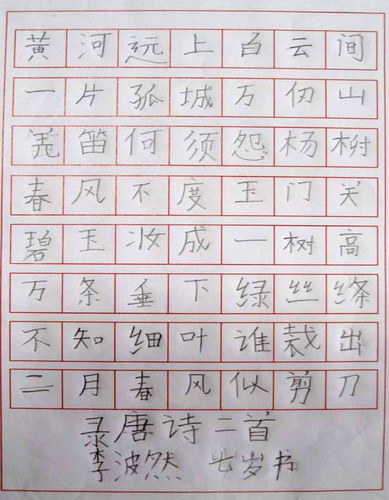 黄河远上白云间
一片孤城万仞山
羌笛何须怨杨树
春风不度玉门关
碧玉妆成一树高
万条垂下绿丝绦
不知细叶谁裁出
二月春风似剪刀
录唐诗二首
李波然 七岁书